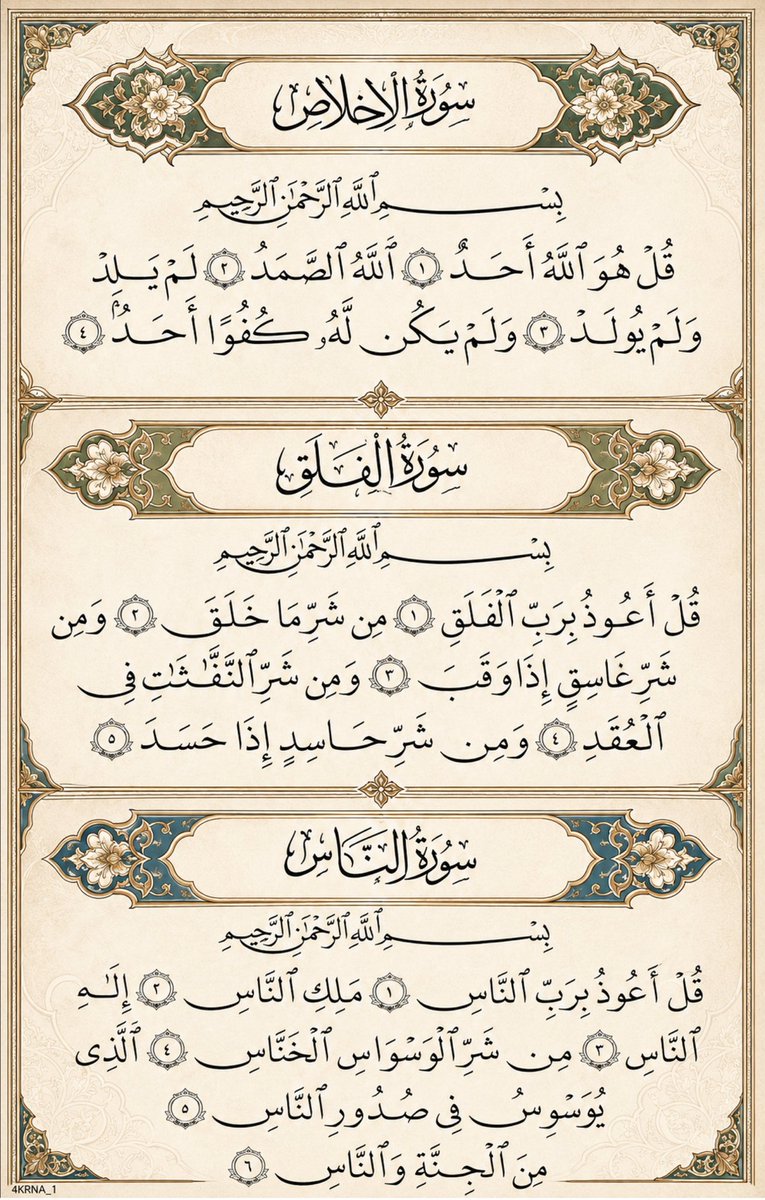 سُورَةُ الْإِخْلَاصِ
بِسْمِ ٱللَّهِ ٱلرَّحْمَٰنِ ٱلرَّحِيمِ
قُلْ هُوَ ٱللَّهُ أَحَدٌ ١ ٱللَّهُ ٱلصَّمَدُ ٢ لَمْ يَلِدْ
وَلَمْ يُولَدْ ٣ وَلَمْ يَكُن لَّهُۥ كُفُوًا أَحَدٌۢ ٤
سُورَةُ الْفَلَقِ
بِسْمِ ٱللَّهِ ٱلرَّحْمَٰنِ ٱلرَّحِيمِ
قُلْ أَعُوذُ بِرَبِّ ٱلْفَلَقِ ١ مِن شَرِّ مَا خَلَقَ ٢ وَمِن
شَرِّ غَاسِقٍ إِذَا وَقَبَ ٣ وَمِن شَرِّ ٱلنَّفَّٰثَٰتِ فِى
ٱلْعُقَدِ ٤ وَمِن شَرِّ حَاسِدٍ إِذَا حَسَدَ ٥
سُورَةُ النَّاسِ
بِسْمِ ٱللَّهِ ٱلرَّحْمَٰنِ ٱلرَّحِيمِ
قُلْ أَعُوذُ بِرَبِّ ٱلنَّاسِ ١ مَلِكِ ٱلنَّاسِ ٢ إِلَٰهِ
ٱلنَّاسِ ٣ مِن شَرِّ ٱلْوَسْوَاسِ ٱلْخَنَّاسِ ٤ ٱلَّذِى
يُوَسْوِسُ فِى صُدُورِ ٱلنَّاسِ ٥
مِنَ ٱلْجِنَّةِ وَٱلنَّاسِ ٦
4KRNA_1